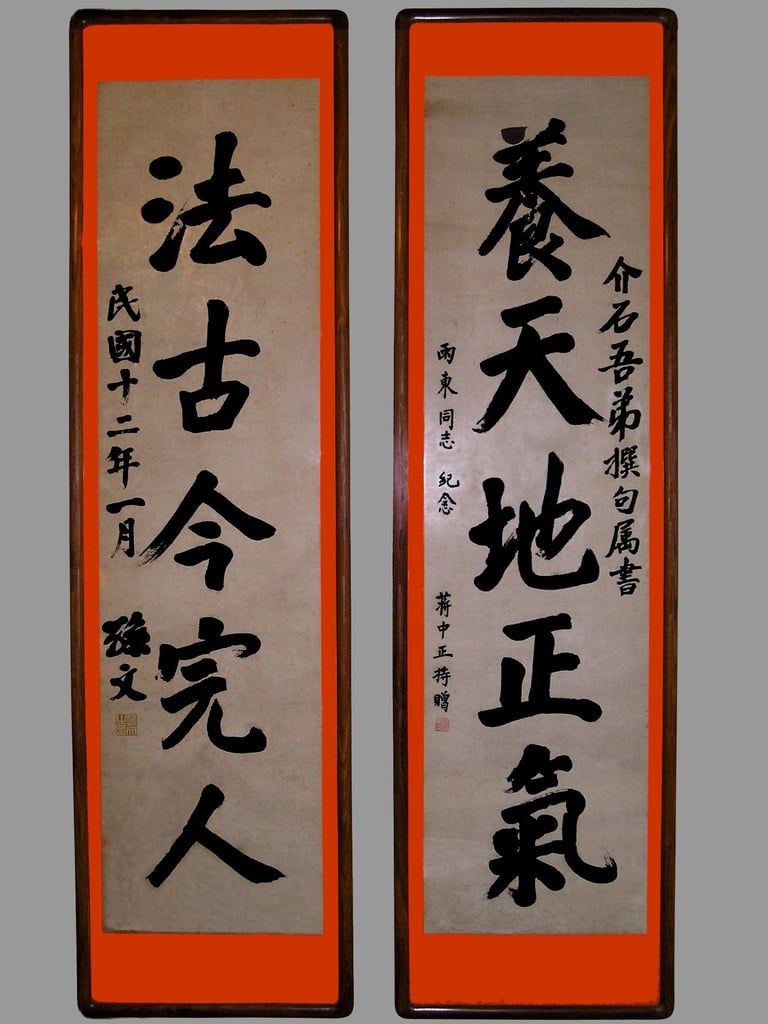 介石吾弟撰句属書
養天地正氣
雨東同志 紀念
蔣中正持贈
法古今完人
民國十二年一月
孫文